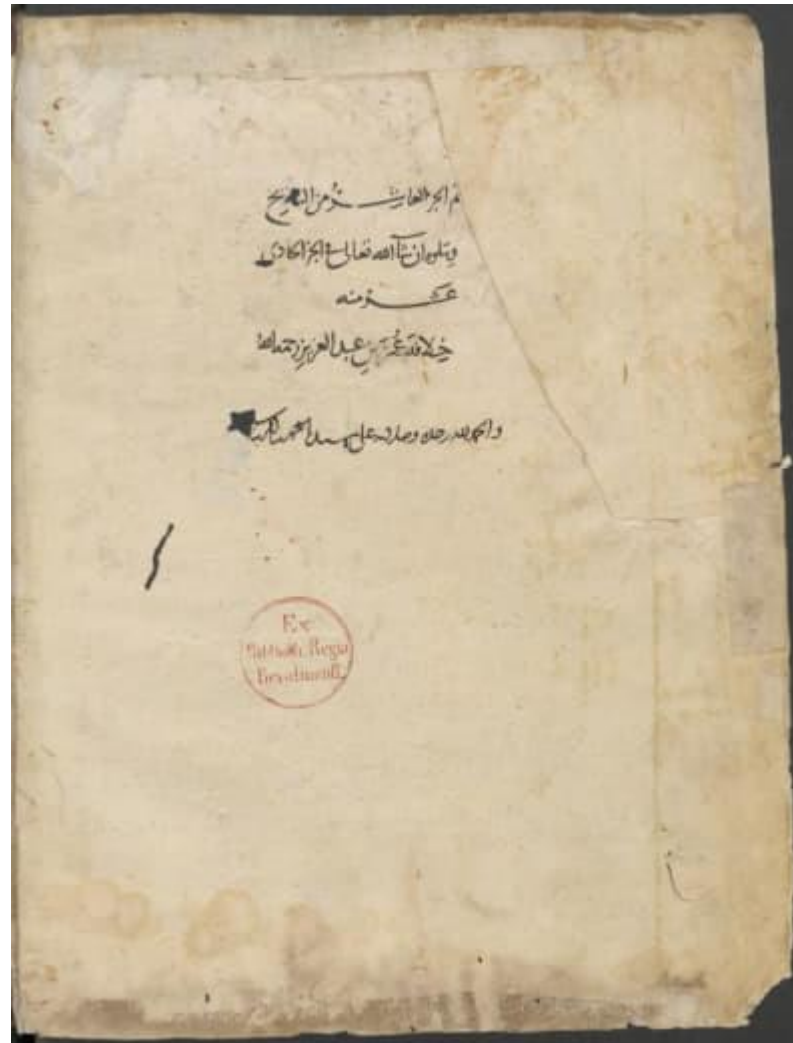 تم الجز العاشر من التاريخ
ويتلوه ان شآ الله تعالى في الجز الحادى
عشر منه
خلافة عمر بن عبد العزيز رحمه الله
والحمد لله وحده وصلواته على سيدنا محمد
Ex
Biblioth. Regia
Berolinensi.